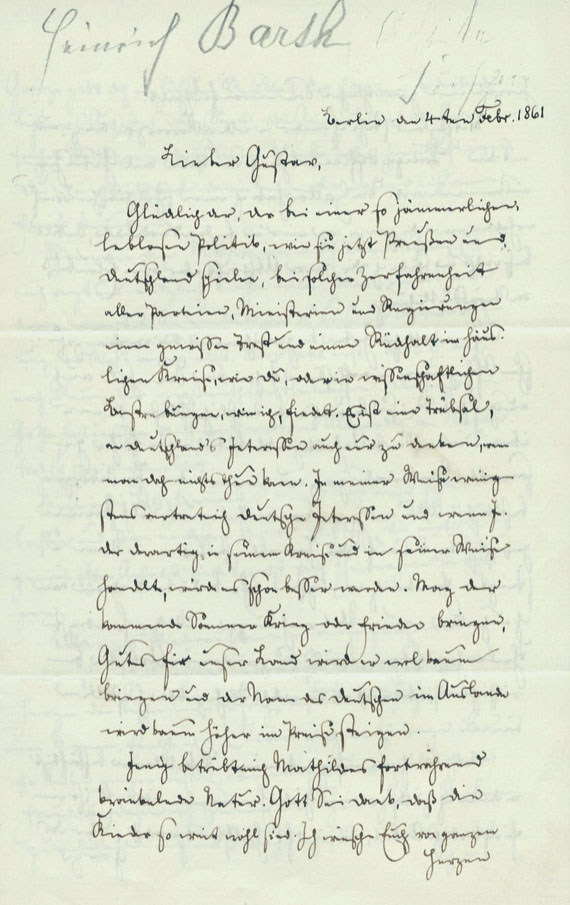 Heinrich Barth
Berlin den 4ten Febr. 1861
Lieber Gustav,
Glücklich der, der bei einer so jämmerlichen,
leblosen Politik, wie sie jetzt Preußen und
Deutschland spielen, bei solcher Zerfahrenheit
aller Parteien, Ministerien und Regierungen
einen gewissen Trost und einen Rückhalt im häus-
lichen Kreise, wie Du, oder in wissenschaftlichen
Bestrebungen, wie ich, findet. Es ist eine Trübsal,
an Deutschland's Interessen auch nur zu denken, wenn
man doch nichts thun kann. In meiner Weise wenig-
stens vertrete ich deutsche Interessen und wenn Je-
der derartig in seinem Kreise und in seiner Weise
handelt, wird es schon besser werden. Mag der
kommende Sommer Krieg oder Frieden bringen,
Gutes für unser Land wird er wol kaum
bringen und der Name des Deutschen im Auslande
wird kaum höher im Preise steigen.
Innig betrübt mich Mathildes fortwährend
kränkelnde Natur. Gott sei dank, daß die
Kinder so weit wohl sind. Ich wünsche Euch von ganzem
Herzen